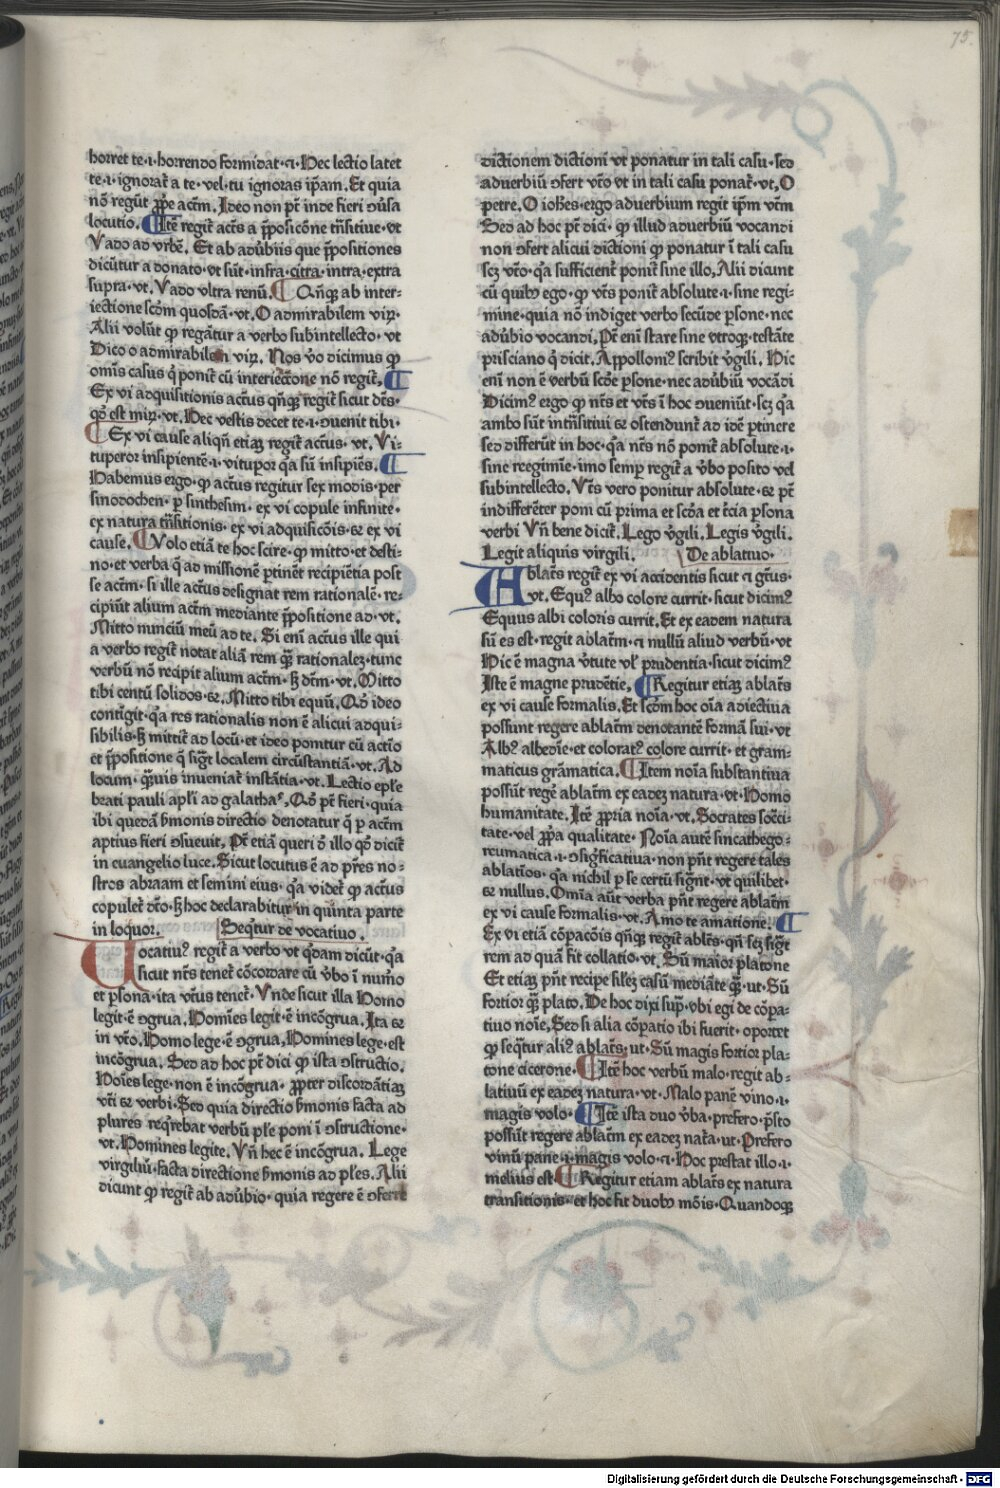 75.
horret te·i·horrendo formidat·⁊·Hec lectio latet
te·i·ignorat̃ a te·vel·tu ignoras ip̃am. Et quia
nõ regũt ꝓp̃e actm̃. Ideo non pt̃ inde fieri ↄũsa
locutio. Itẽ regit̃ act̃s a p̃posicõne tñsitiue·vt
Vado ad vrbẽ. Et ab adu̾biis que p̃positiones
dicũtur a donato·vt sũt·infra·citra·intra·extra
supra·vt·Vado vltra renũ. Qñqꝫ ab inter-
iectione scd̃m quosdã·vt·O admirabilem viꝝ·
Alii volũt ꝙ regãtur a verbo subintellecto·vt
Dico o admirabilem viꝝ. Nos v̾o dicimus ꝙ
om̃is casus q̃ ponit̃ cũ interiectione nõ regit̃.
Ex vi adquisitionis act̃us qñqꝫ regit̃ sicut dt̃s·
qd̾ est miꝝ·vt·Hec vestis decet te·i·ↄuenit tibi·
Ex vi cause aliqñ etiaꝫ regit̃ act̃us·vt·Vi-
tuperor insipientẽ·i·vitupor q̃a sũ insipiẽs.
Habemus ergo·ꝙ act̃us regitur sex modis·per
sinodochen·ꝑ sinthesim·ex vi copule infinite·
ex natura tñsitionis·ex vi adquisicõis·⁊ ex vi
cause. Volo etiã te hoc scire·ꝙ mitto·et desti-
no·et verba q̃ ad missionẽ ꝑtinẽt recipiẽtia post
se actm̃·si ille act̃us designat rem rationalẽ·re-
cipiũt alium actm̃ mediante p̃positione ad·vt·
Mitto nunciũ meũ ad te. Si eni act̃us ille qui
a verbo regit̃ notat aliã rem q̃ꝫ rationaleꝫ·tunc
verbũ nõ recipit alium actm̃·sꝫ dt̃m·vt·Mitto
tibi centũ solidos·⁊·Mitto tibi equũ. Qd̾ ideo
contĩgit·q̃a res rationalis non ẽ alicui adqui-
sibilis·sꝫ mittit̃ ad locũ·et ideo ponitur cũ actio
et p̃positione q̃ sigt̃ localem circũstantiã·vt·Ad
locum·q̃ꝫuis inueniat̃ instãtia·vt·Lectio ep̃le
beati pauli apl̃i ad galathas. Qd̾ pt̃ fieri·quia
ibi quedã s̾monis directio denotatur q̃ ꝑ actm̃
aptius fieri ↄsueuit. Pt̃ etiã queri d̾ illo qd̾ dicit̃
in euangelio luce. Sicut locutus ẽ ad pr̃es no-
stros abraam et semini eius·q̃a videt̃ ꝙ act̃us
copulet̃ dt̃o·sꝫ hoc declarabitur in quinta parte
in loquor. Seq̃tur de vocatiuo.
Vocatiuꝰ regit̃ a verbo vt q̃dam dicũt·q̃a
sicut nt̃s tenet̃ cõcordare cũ v̾bo ĩ num̾o
et ꝑsona·ita vt̃us tenet̃·Vnde sicut illa Homo
legit·ẽ ↄgrua. Homĩes legit·ẽ incõgrua. Ita ⁊
in vt̃o. Homo lege·ẽ ↄgrua. Homines lege·est
incõgrua. Sed ad hoc pt̃ dici ꝙ ista ↄstructio.
Hoĩes lege·non ẽ incõgrua·ꝓpter discordãtiaꝫ
vt̃i ⁊ verbi·Sed quia directio s̾monis facta ad
plures reqrebat verbũ pl̃e poni ĩ ↄstructione·
vt·Homines legite. Vñ hec ẽ incõgrua. Lege
virgiliũ·facta directione s̾monis ad pl̃es. Alii
dicunt ꝙ regit̃ ab adu̾bio·quia regere ẽ ↄferre
dictionem dictioni vt ponatur in tali casu·sed
aduerbiũ ↄfert vt̃o vt in tali casu ponat̃·vt·O
petre. O ioh̃es·ergo aduerbium regit ip̃m vt̃m
Sed ad hoc pt̃ dici·ꝙ illud aduerbiũ vocandi
non ↄfert alicui dictioni ꝙ ponatur ĩ tali casu
scꝫ vt̃o·q̃a sufficient̃ ponit̃ sine illo. Alii dicunt
cũ quibꝰ ego·ꝙ vt̃s ponit̃ absolute·i·sine regi-
mine·quia nõ indiget verbo secũde ꝑsone·nec
adu̾bio vocandi. Pt̃ eni stare sine vtroqꝫ·testãte
prisciano q̃ dicit. Appollomiꝰ scribit v̾gili. Hic
eni non ẽ verbũ scd̃e ꝑsone·nec adu̾biũ vocãdi
Dicimꝰ ergo ꝙ nt̃s et vt̃s ĩ hoc ↄueniũt·scꝫ q̃a
ambo sũt intñsitiui ⁊ ostendunt̃ ad idẽ ꝑtinere
sed differũt in hoc·q̃a nt̃s nõ ponit̃ absolute·i·
sine regimĩe·imo semꝑ regit̃ a v̾bo posito vel
subintellecto. Vt̃s vero ponitur absolute·⁊ pt̃
indifferẽter poni cũ prima et scd̃a et t̾cia ꝑsona
verbi Vñ bene dicit̃. Lego v̾gili. Legis v̾gili.
Legit aliquis virgili. De ablatiuo·
Ablat̃s regit̃ ex vi accidentis sicut ⁊ gt̃us·
vt. Equꝰ albo colore currit·sicut dicimꝰ
Equus albi coloris currit. Et ex eadem natura
sũ es est·regit ablatm̃·⁊ nullũ aliud verbũ·vt
Hic ẽ magna v̾tute vl̾ prudentia·sicut dicimꝰ
Iste ẽ magne prudẽtie. Regitur etiaꝫ ablat̃s
ex vi cause formalis. Et scd̃m hoc oĩa adiectiua
possunt regere ablatm̃ denotantẽ formã sui·vt
Albꝰ albedĩe·et coloratꝰ colore currit·et gram-
maticus grãmatica. Item noĩa substantiua
possũt regẽ ablatm̃ ex eadeꝫ natura·vt·Homo
humanitate. Itẽ ꝓpria noĩa·vt·Socrates socci-
tate·vel ꝓp̃a qualitate·Noĩa autẽ sincathego-
reumatica·i·ↄsig̾ficatiua·non pñt regere tales
ablatĩos·q̃a nichil ꝑ se certũ signt̃·vt quilibet·
⁊ nullus. Omĩa aũt verba pñt regere ablatm̃
ex vi cause formalis·vt·Amo te amatione.
Ex vi etiã cõpacõis qñqꝫ regit̃ ablt̃s·qñ scꝫ sigt̃
rem ad quã fit collatio·vt·Sũ maior platone
Et etiaꝫ pñt recipe sil̃eꝫ casũ mediãte q̃ꝫ·ut·Sũ
fortior q̃ꝫ plato. De hoc dixi sup̾·vbi egi de cõpa-
tiuo noĩe. Sed si alia cõpatio ibi fuerit·oportet
ꝙ seq̃tur aliꝰ ablat̃s·ut·Sũ magis fortior pla-
tone cicerone. Itẽ hoc verbũ malo·regit ab-
latiuũ ex eadeꝫ natura·vt·Malo panẽ vino·i·
magis volo· Itẽ ista duo v̾ba·prefero·p̾sto
possũt regere ablatm̃ ex eadeꝫ nat̃a·ut·Prefero
vinũ pane·i·magis volo·⁊·Hoc prestat illo·i·
melius est· Regitur etiam ablat̃s ex natura
transitionis·et hoc fit duobꝰ mõis·Quandoqꝫ
Digitalisierung gefördert durch die Deutsche Forschungsgemeinschaft · DFG